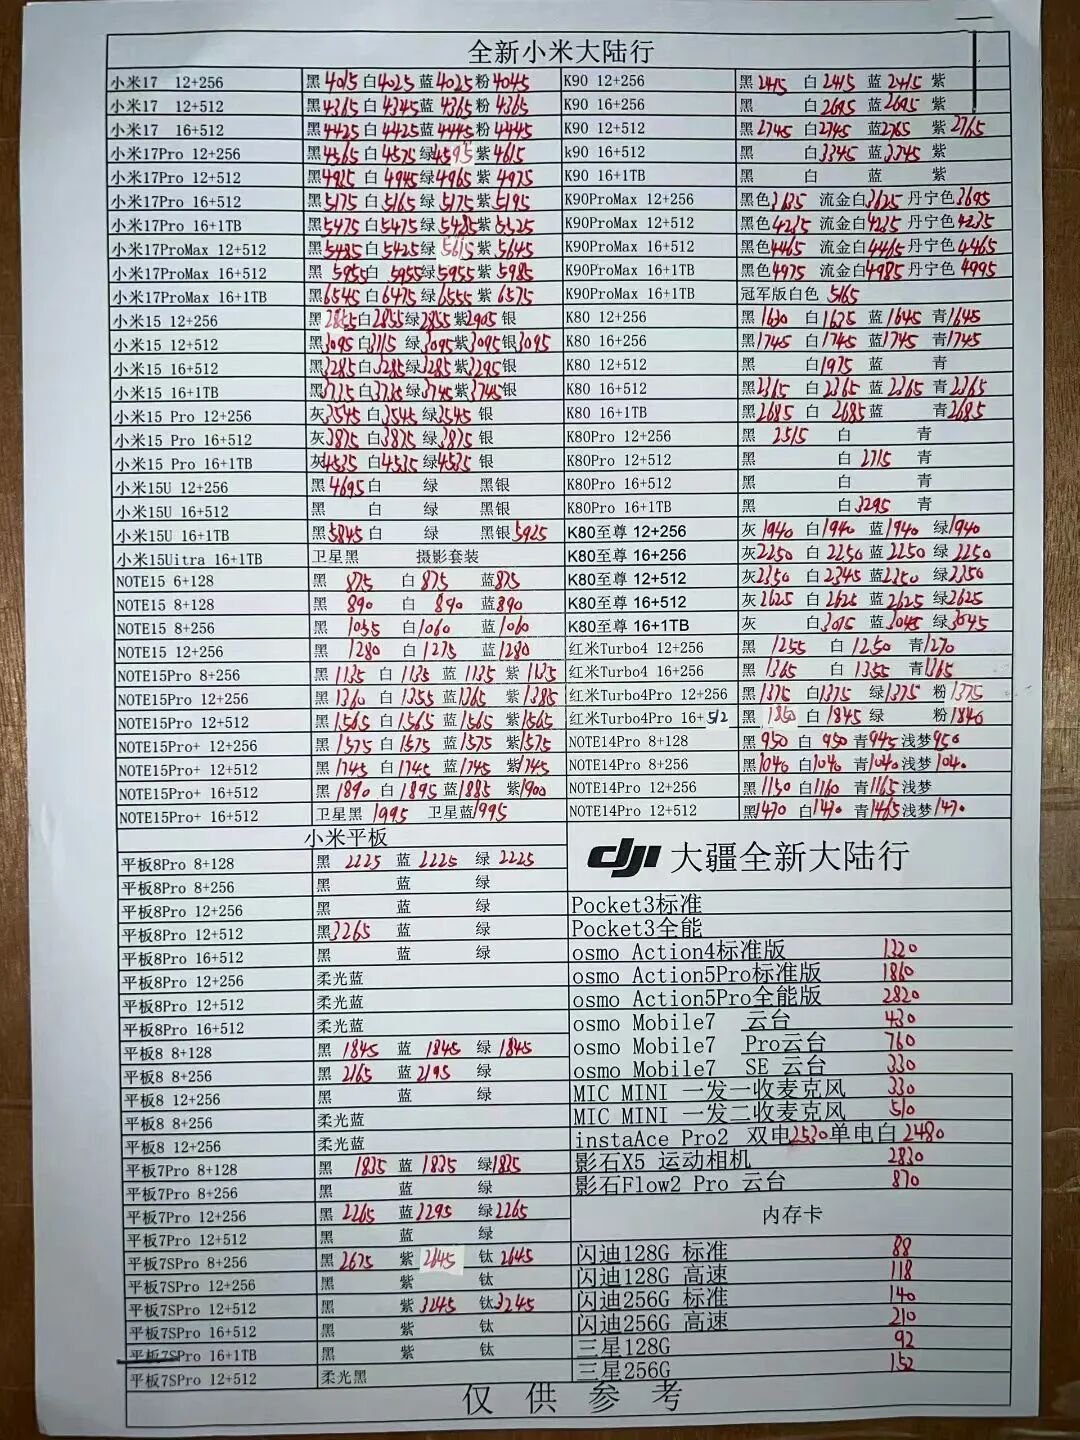 全新小米大陆行
小米17 12+256 黑4015 白4025 蓝4025 粉4045
小米17 12+512 黑4365 白4345 蓝4365 粉4365
小米17 16+512 黑4425 白4425 蓝4445 粉4445
小米17Pro 12+256 黑4565 白4575 绿4595 紫4615
小米17Pro 12+512 黑4925 白4945 绿4965 紫4975
小米17Pro 16+512 黑5175 白5165 绿5175 紫5195
小米17Pro 16+1TB 黑5475 白5475 绿5485 紫5525
小米17ProMax 12+512 黑5485 白5425 绿5615 紫5645
小米17ProMax 16+512 黑5955 白5955 绿5955 紫5985
小米17ProMax 16+1TB 黑6545 白6475 绿6555 紫6575
小米15 12+256 黑2855 白2855 绿2855 紫2905 银
小米15 12+512 黑3095 白3115 绿3095 紫3095 银3095
小米15 16+512 黑3285 白3285 绿3285 紫3295 银
小米15 16+1TB 黑3735 白3735 绿3745 紫3745 银
小米15 Pro 12+256 灰3545 白3545 绿3545 银
小米15 Pro 16+512 灰3875 白3875 绿3875 银
小米15 Pro 16+1TB 灰4535 白4535 绿4535 银
小米15U 12+256 黑4695 白 绿 黑银
小米15U 16+512 黑 白 绿 黑银
小米15U 16+1TB 黑5845 白 绿 黑银5925
小米15Uitra 16+1TB 卫星黑 摄影套装
NOTE15 6+128 黑 875 白875 蓝875
NOTE15 8+128 黑 890 白 890 蓝890
NOTE15 8+256 黑 1035 白1060 蓝1060
NOTE15 12+256 黑 1280 白1275 蓝1280
NOTE15Pro 8+256 黑1135 白1135 蓝1135 紫1135
NOTE15Pro 12+256 黑1360 白1355 蓝1365 紫1385
NOTE15Pro 12+512 黑1565 白1565 蓝1565 紫1565
NOTE15Pro+ 12+256 黑1575 白1575 蓝1575 紫1575
NOTE15Pro+ 12+512 黑1745 白1745 蓝1745 紫1745
NOTE15Pro+ 16+512 黑1890 白1895 蓝1885 紫1900
NOTE15Pro+ 16+512 卫星黑 1995 卫星蓝1995
K90 12+256 黑2415 白2415 蓝2415 紫
K90 16+256 黑 白2695 蓝2695 紫
K90 12+512 黑2745 白2745 蓝2765 紫2765
k90 16+512 黑 白3345 蓝3345 紫
K90 16+1TB 黑 白 蓝 紫
K90ProMax 12+256 黑色3635 流金白3625 丹宁色3695
K90ProMax 12+512 黑色4235 流金白4235 丹宁色4235
K90ProMax 16+512 黑色4465 流金白4465 丹宁色4465
K90ProMax 16+1TB 黑色4975 流金白4985 丹宁色4995
K90ProMax 16+1TB 冠军版白色 5165
K80 12+256 黑1630 白1625 蓝1645 青1645
K80 16+256 黑1745 白1745 蓝1745 青1745
K80 12+512 黑 白1975 蓝 青
K80 16+512 黑2365 白2365 蓝2365 青2365
K80 16+1TB 黑2685 白 2685 蓝 青2685
K80Pro 12+256 黑 2515 白 青
K80Pro 12+512 黑 白 2715 青
K80Pro 16+512 黑 白 青
K80Pro 16+1TB 黑 白3295 青
K80至尊 12+256 灰1940 白1940 蓝1940 绿1940
K80至尊 16+256 灰2250 白2250 蓝2250 绿2250
K80至尊 12+512 灰2350 白2345 蓝2350 绿2350
K80至尊 16+512 灰2625 白2625 蓝2625 绿2625
K80至尊 16+1TB 灰 白3015 蓝3045 绿3045
红米Turbo4 12+256 黑 1255 白1250 青1270
红米Turbo4 16+256 黑 1365 白 1355 青1365
红米Turbo4Pro 12+256 黑1375 白1375 绿1375 粉1375
红米Turbo4Pro 16+512 黑1850 白1845 绿 粉1840
NOTE14Pro 8+128 黑950 白 950 青945 浅梦950
NOTE14Pro 8+256 黑1040 白1040 青1040 浅梦1040
NOTE14Pro 12+256 黑1150 白1160 青1165 浅梦
NOTE14Pro 12+512 黑1470 白1470 青1465 浅梦1470
小米平板
平板8Pro 8+128 黑 2225 蓝 2225 绿 2225
平板8Pro 8+256 黑 蓝 绿
平板8Pro 12+256 黑 蓝 绿
平板8Pro 12+512 黑3265 蓝 绿
平板8Pro 16+512 黑 蓝 绿
平板8Pro 12+256 柔光蓝
平板8Pro 12+512 柔光蓝
平板8Pro 16+512 柔光蓝
平板8 8+128 黑 1845 蓝 1845 绿 1845
平板8 8+256 黑 2165 蓝 2195 绿
平板8 12+256 黑 蓝 绿
平板8 8+256 柔光蓝
平板8 12+256 柔光蓝
平板7Pro 8+128 黑 1835 蓝 1835 绿1835
平板7Pro 8+256 黑 蓝 绿
平板7Pro 12+256 黑2265 蓝2295 绿2265
平板7Pro 12+512 黑 蓝 绿
平板7SPro 8+256 黑2675 紫2645 钛2645
平板7SPro 12+256 黑 紫 钛
平板7SPro 12+512 黑 紫3245 钛3245
平板7SPro 16+512 黑 紫 钛
平板7SPro 16+1TB 黑 紫 钛
平板7SPro 12+512 柔光黑
dji 大疆全新大陆行
Pocket3标准
Pocket3全能
osmo Action4标准版 1320
osmo Action5Pro标准版 1860
osmo Action5Pro全能版 2820
osmo Mobile7 云台 430
osmo Mobile7 Pro云台 760
osmo Mobile7 SE 云台 330
MIC MINI 一发一收麦克风 330
MIC MINI 一发二收麦克风 510
instaAce Pro2 双电2530单电白 2480
影石X5 运动相机 2830
影石Flow2 Pro 云台 870
内存卡
闪迪128G 标准 88
闪迪128G 高速 118
闪迪256G 标准 140
闪迪256G 高速 210
三星128G 92
三星256G 152
仅供参考